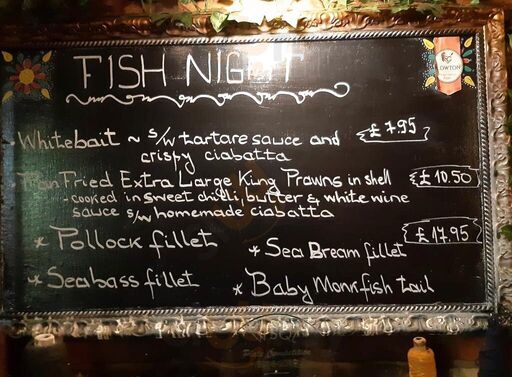 FISH NIGHT
OWTON
Whitebait ~ s/w tartare sauce and £7.95
crispy ciabatta
Pan Fried Extra Large King Prawns in shell £10.50
- cooked in sweet chilli, butter & white wine
sauce s/w homemade ciabatta
* Pollock fillet * Sea Bream fillet £17.95
* Seabass fillet * Baby Monkfish tail